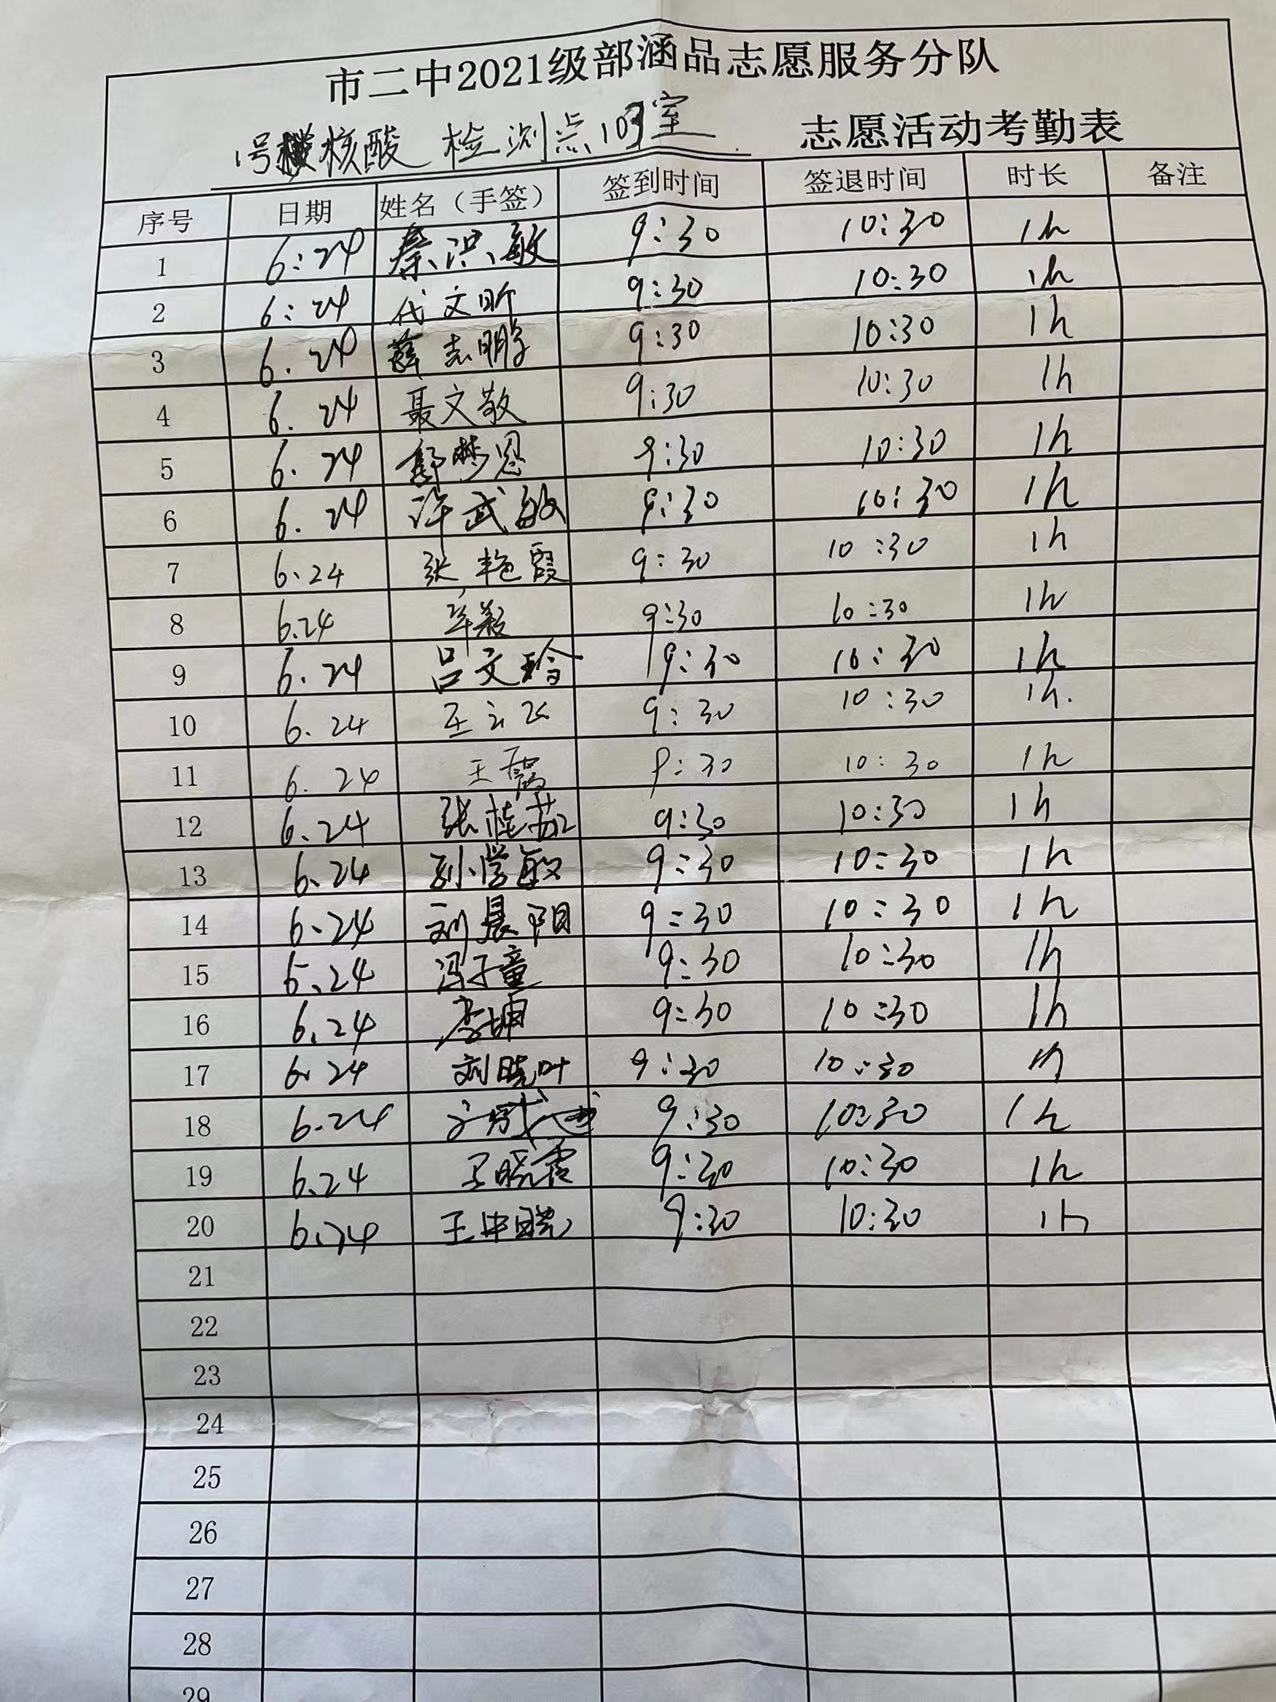 市二中2021级部涵品志愿服务分队
1号楼核酸检测点103室 志愿活动考勤表
序号 日期 姓名（手签） 签到时间 签退时间 时长 备注
1 6:24 秦洪敏 9:30 10:30 1h
2 6:24 代文昕 9:30 10:30 1h
3 6.24 薛志鹏 9:30 10:30 1h
4 6.24 聂文敬 9:30 10:30 1h
5 6.24 郭梦恩 9:30 10:30 1h
6 6.24 许武敏 9:30 10:30 1h
7 6.24 张艳霞 9:30 10:30 1h
8 6.24 9:30 10:30 1h
9 6.24 吕文玲 9:30 10:30 1h
10 6.24 王云飞 9:30 10:30 1h.
11 6.24 王霞 9:30 10:30 1h
12 6.24 张桂茹 9:30 10:30 1h
13 6.24 孙学敏 9:30 10:30 1h
14 6.24 刘晨阳 9:30 10:30 1h
15 6.24 冯子童 9:30 10:30 1h
16 6.24 李坤 9:30 10:30 1h
17 6.24 刘晓叶 9:30 10:30 1h
18 6.24 9:30 10:30 1h
19 6.24 王晓霞 9:30 10:30 1h
20 6.24 王申聪 9:30 10:30 1h
21
22
23
24
25
26
27
28
29